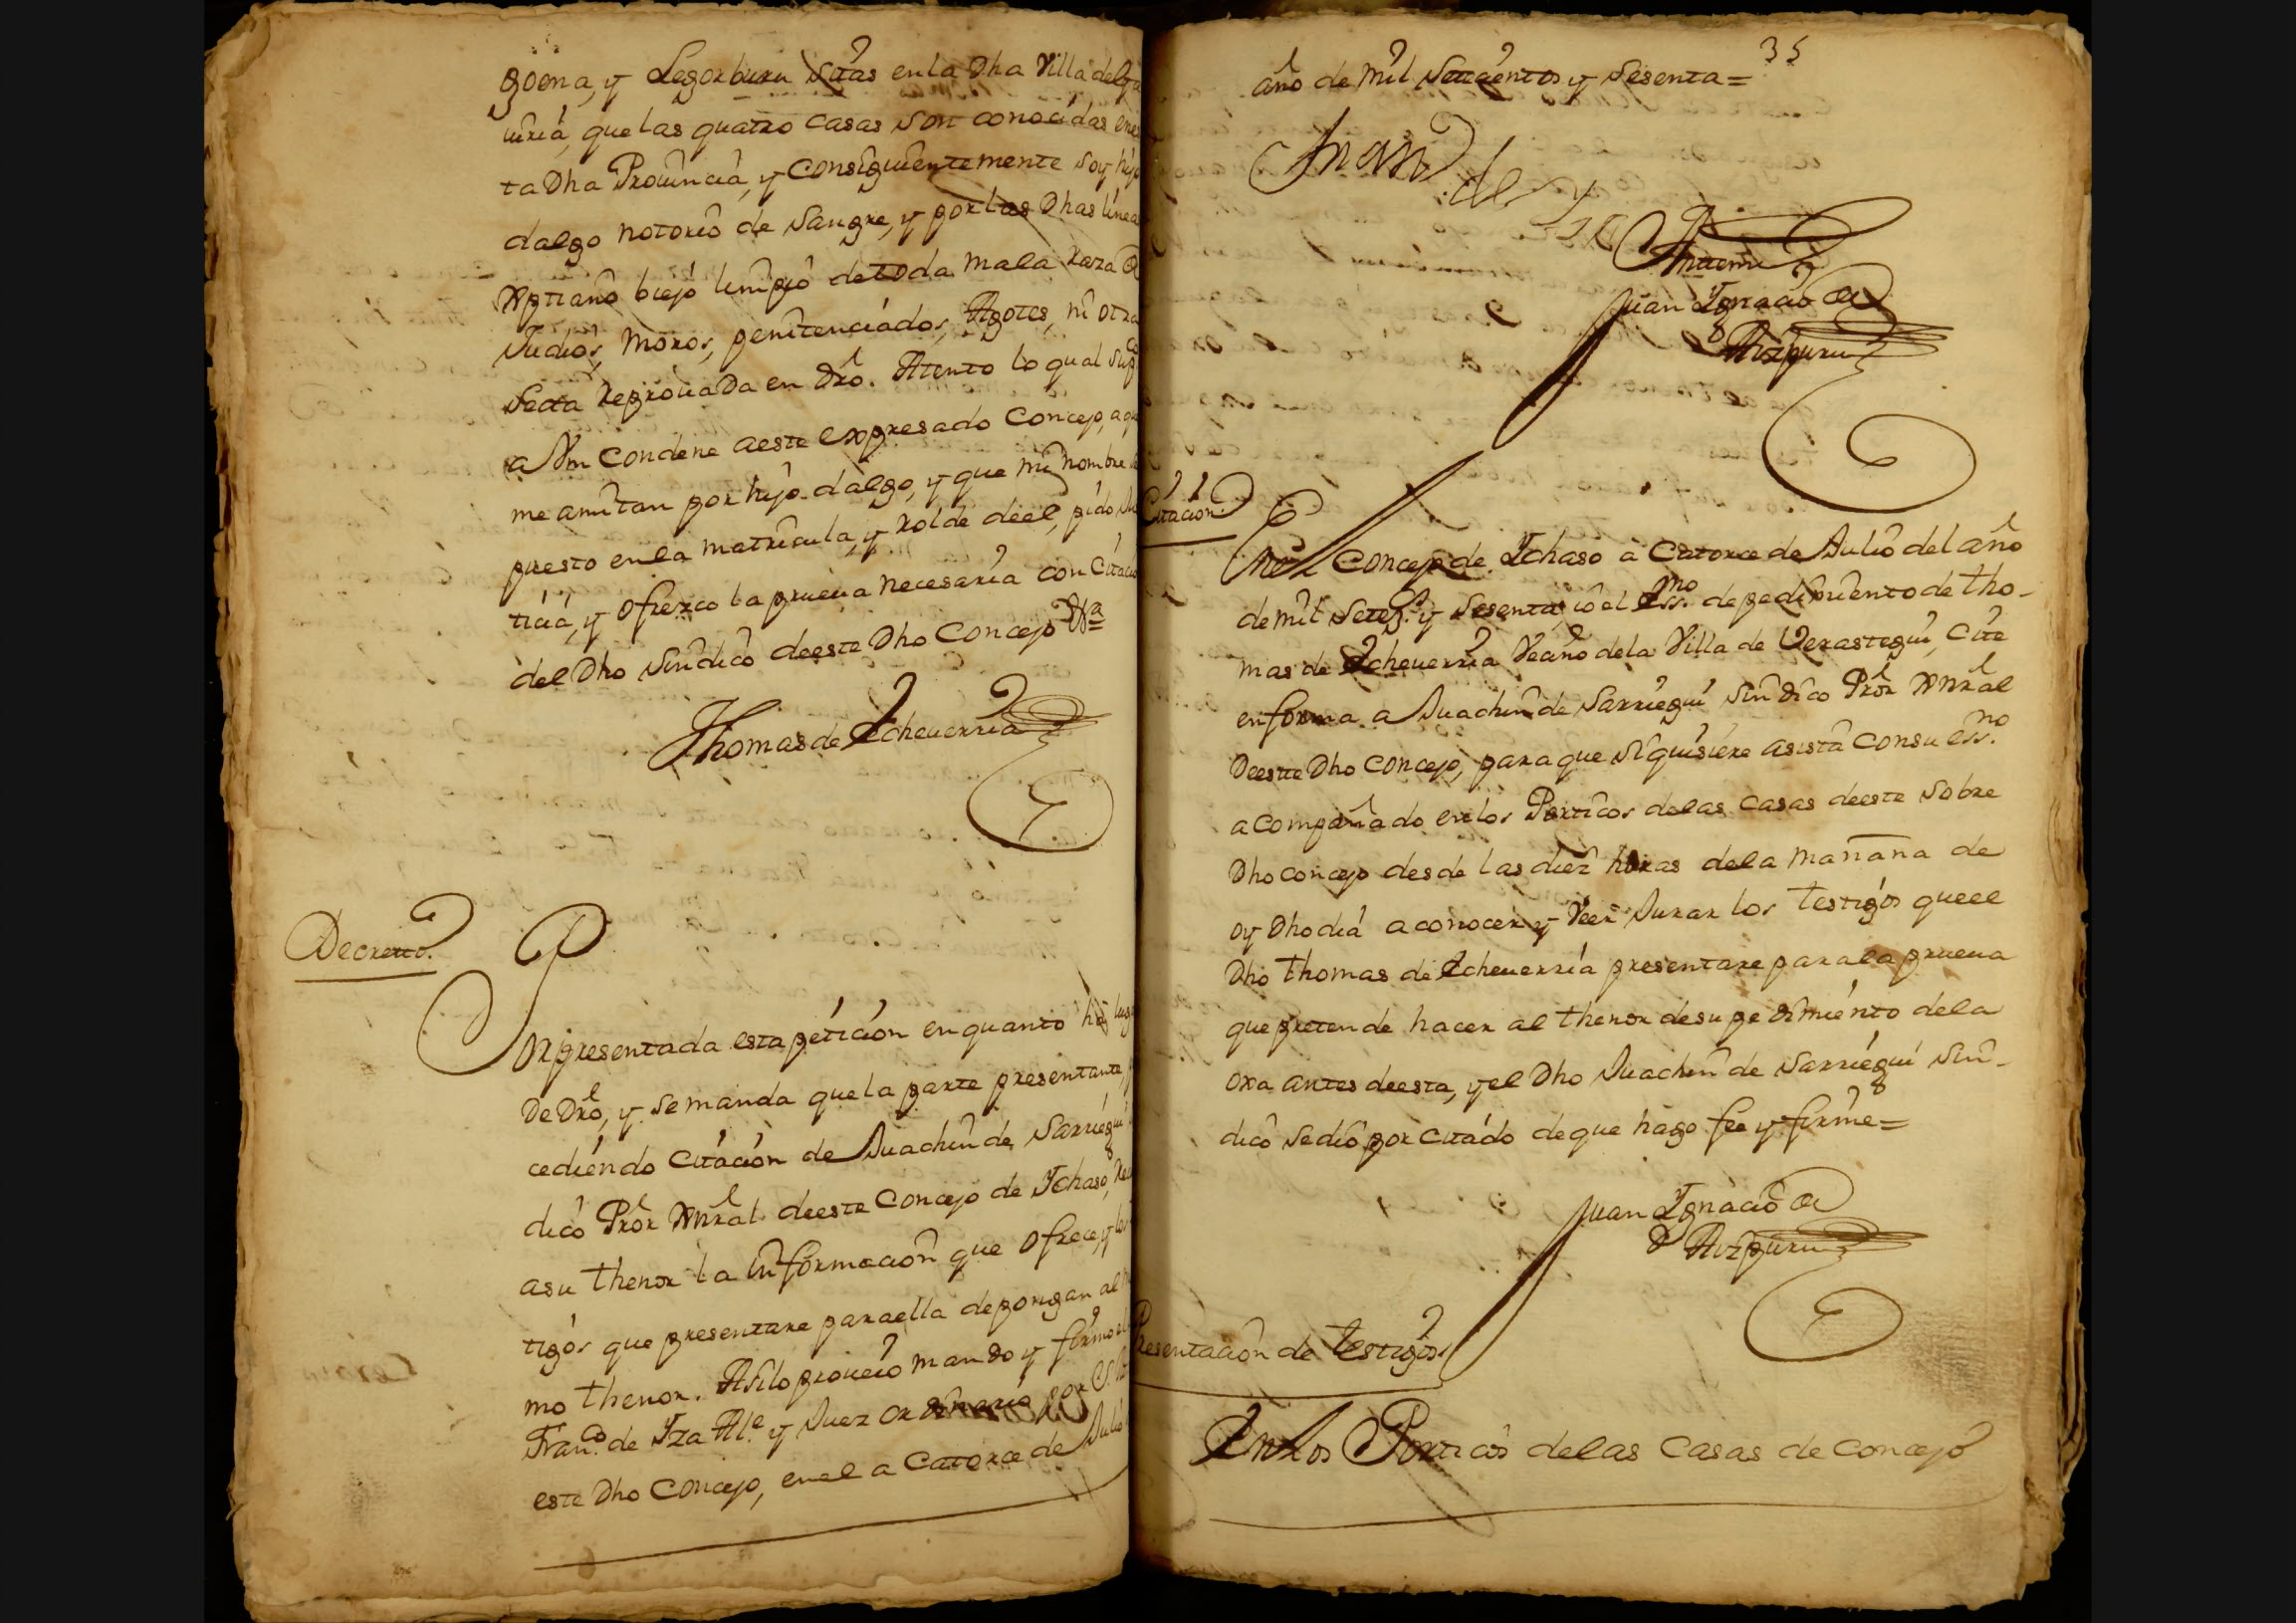 goena, y Legorburu sitas en la Dha Villa de
uiria, que las quatro casas son conocidas en es
ta Dha Prouincia, y consiguientemente soy hijo
dalgo notorio de sangre, y por las Dhas linea
Xptiano biejo limpio de toda mala raza de
Judios, Moros, penitenciados, Agotes, ni otra
secta reprouada en dro. Atento lo qual supco
a Vm condene a este expresado Concejo, a que
me amitan por hijo dalgo, y que mi nombre
puesto en la matricula, y rolde de el, pido Jus
ticia, y ofrezco la prueua necesaria con Citacio
del Dho sindico de este Dho Concejo Va =
Thomas de Echeuerria
Decretto.
Por presentada esta peticion en quanto ha lug
de Dro, y se manda que la parte presentante,
cediendo citacion de Juachin de Sarriegui
dico Pror Gnral de este Concejo de Ychaso,
a su thenor la informacion que ofrece, y los
tigos que presentare para ella depongan al
mo thenor. Asi lo proueio mando y firmo el
Franco. de Yza Alce. y Juez ordinario por S.
este Dho Concejo, en el a Catorce de Julio
35
año de mil Setecientos y Sesenta =
Juan de Yza
Antemi
Juan Ignacio de
Aizpuru
Citacion.
En el Concejo de Ychaso à Catorce de Julio del año
de mil Setezs. y Sesenta, io el essno. de pedimiento de Tho-
mas de Echeuerria Vecino de la Villa de Verastegui, Cite
en forma a Juachin de Sarriegui sindico Pror Gnral
de este Dho Concejo, para que si quisiere asista con su essno.
acompañado en los Porticos de las casas de este sobre
Dho concejo desde las diez horas de la mañana de
oy Dho dia a conocer y Veer Jurar los testigos que el
Dho Thomas de Echeuerria presentare para la prueua
que pretende hacer al thenor de su pedimiento de la
oxa antes de esta, y el Dho Juachin de Sarriegui sin-
dico se dio por citado de que hago fee y firme =
Juan Ignacio de
Aizpuru
Presentacion de testigos
En los Porticos de las Casas de concejo